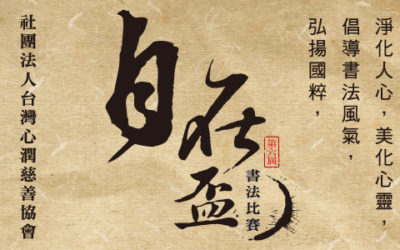 淨化人心，美化心靈，
倡導書法風氣，
弘揚國粹，
自在盃
第六屆
書法比賽
社團法人台灣心潤慈善協會